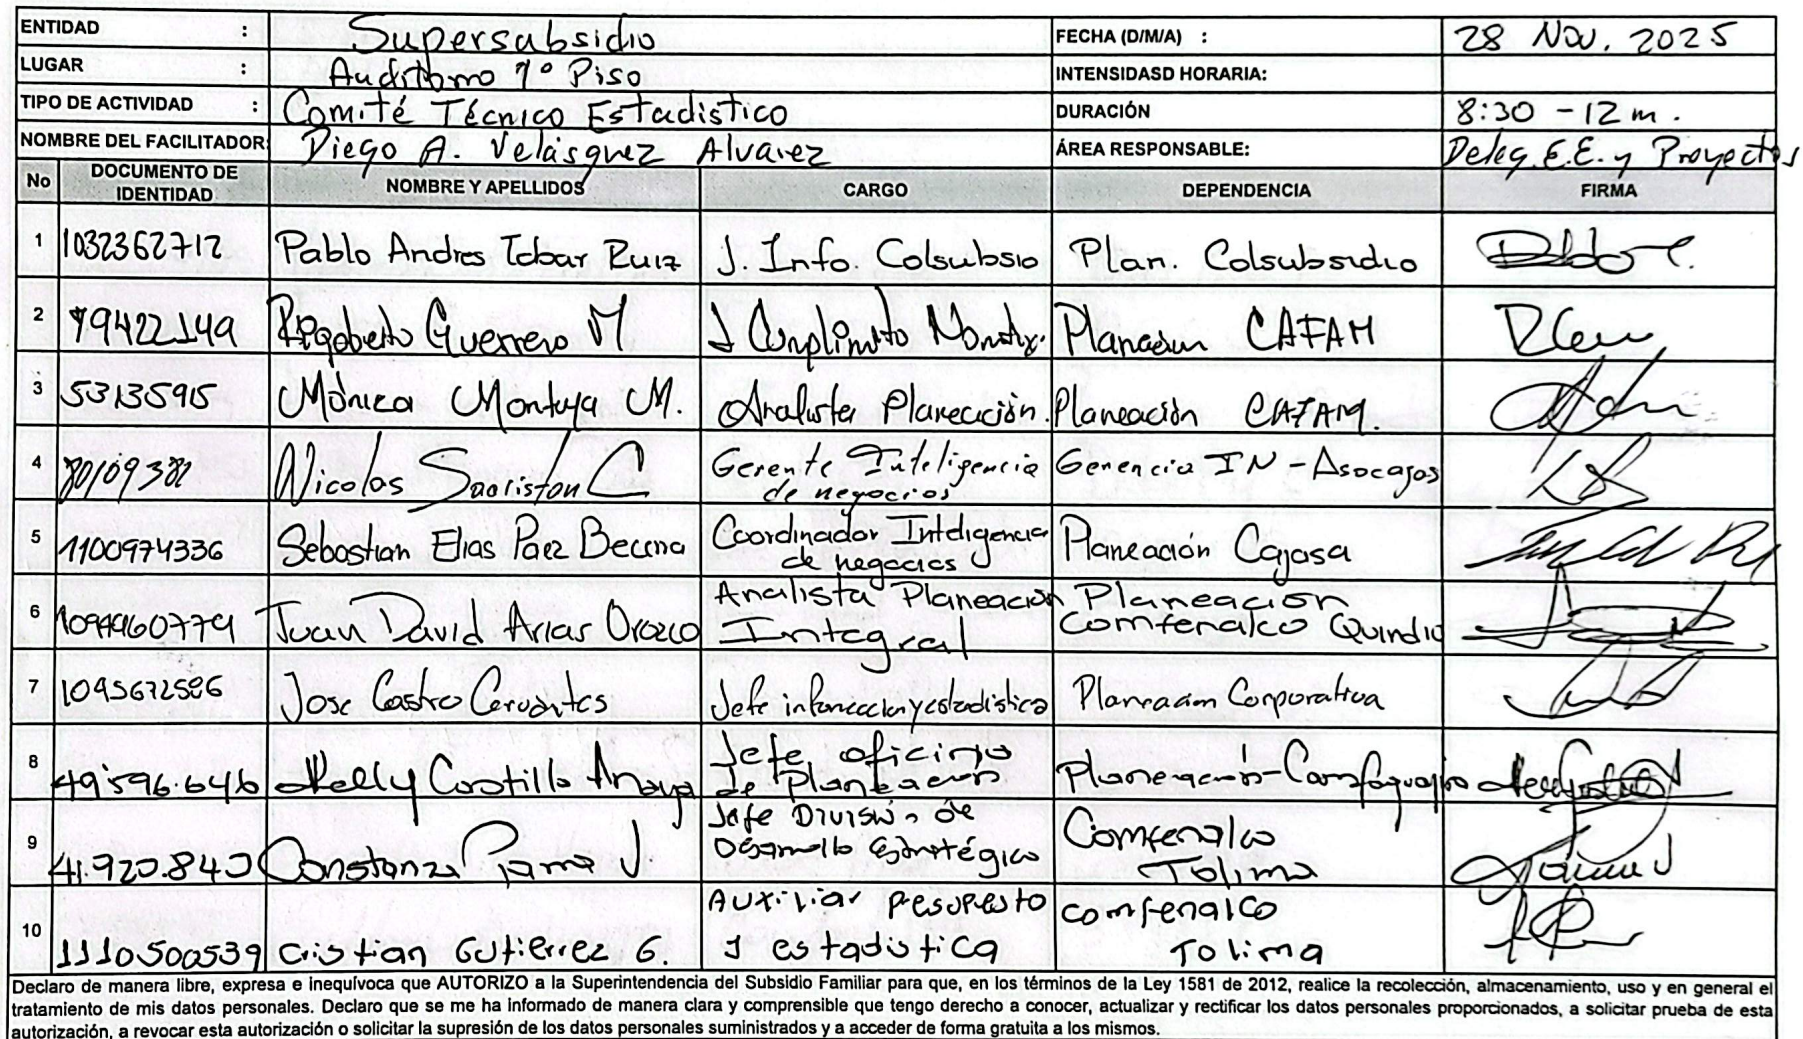 ENTIDAD : Supersubsidio FECHA (D/M/A) : 28 Nov. 2025
LUGAR : Auditorio 1° Piso INTENSIDASD HORARIA:
TIPO DE ACTIVIDAD : Comité Técnico Estadistico DURACIÓN 8:30 - 12 m.
NOMBRE DEL FACILITADOR: Diego A. Velásquez Alvarez ÁREA RESPONSABLE: Deleg. E.E. y Proyectos
No DOCUMENTO DE IDENTIDAD NOMBRE Y APELLIDOS CARGO DEPENDENCIA FIRMA
1 1032362712 Pablo Andres Tobar Ruiz J. Info. Colsubsio Plan. Colsubsidio
2 79422149 Rigoberto Guerrero M J Cumplimito Planeación CAFAM
3 53135915 Mónica Montoya M. Analista Planeación. Planeación CAFAM.
4 80109382 Nicolas C Gerente Inteligencia de negocios Gerencia IN - Asocajas
5 1100974336 Sebastian Elias Paez Becerra Coordinador Inteligencia de negocios Planeación Cajasa
6 Juan David Arias Orozco Analista Planeación Integral Planeación Comfenalco Quindio
7 1095672586 Jose Castro Cervantes Jefe información y estadistica Planeación Corporativa
8 49'596.646 Kelly Castillo Anaya Jefe oficina de planeación Planeación - Comfaguajira
9 41.920.840 Constanza J Jefe División de Desarrollo Estratégico Comfenalco Tolima
10 1110500539 Cristian Gutierrez G. Auxiliar presupesto y estadistica comfenalco Tolima
Declaro de manera libre, expresa e inequívoca que AUTORIZO a la Superintendencia del Subsidio Familiar para que, en los términos de la Ley 1581 de 2012, realice la recolección, almacenamiento, uso y en general el
tratamiento de mis datos personales. Declaro que se me ha informado de manera clara y comprensible que tengo derecho a conocer, actualizar y rectificar los datos personales proporcionados, a solicitar prueba de esta
autorización, a revocar esta autorización o solicitar la supresión de los datos personales suministrados y a acceder de forma gratuita a los mismos.